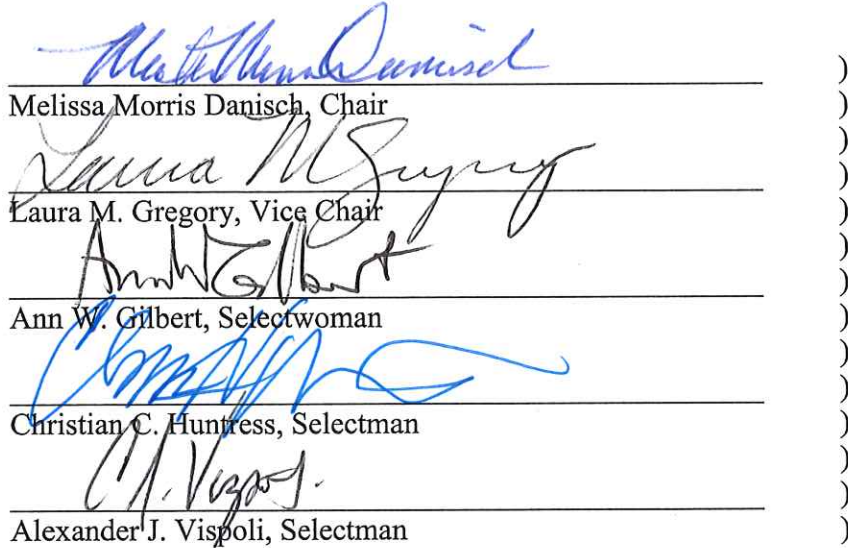 )
Melissa Morris Danisch, Chair )
)
Laura M Gregory )
Laura M. Gregory, Vice Chair )
)
Ann W Gilbert )
Ann W. Gilbert, Selectwoman )
)
)
Christian C. Huntress, Selectman )
)
)
Alexander J. Vispoli, Selectman )